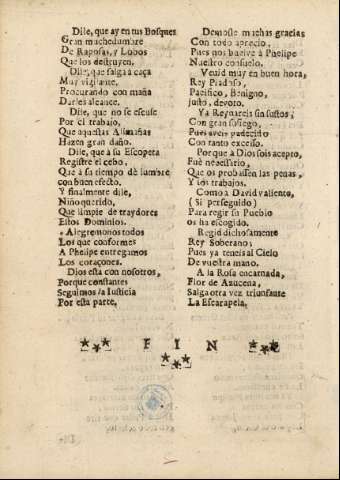 Dile, que ay en tus Bosques
Gran muchedumbre
De Raposas, y Lobos
Que los destruyen.
Dile, que salga à caça
Muy vigilante,
Procurando con maña
Darles alcance.
Dile, que no se escuse
Por el trabajo,
Que aquestas Alimañas
Hazen gran daño.
Dile, que à su Escopeta
Registre el cebo,
Que à su tiempo dè lumbre
con buen efecto.
Y finalmente dile,
Niño querido,
Que limpie de traydores
Estos Dominios.
Alegremonos todos
Los que conformes
A Phelipe entregamos
Los coraçones.
Dios està con nosotros,
Porque constantes
Seguimos la Iusticia
Por esta parte.
Demosle muchas gracias
Con todo aprecio,
Pues nos buelve à Phelipe
Nuestro consuelo.
Venid muy en buen hora,
Rey Piadoso,
Pacifico, Benigno,
justo, devoto.
Ya Reynareis sin sustos;
Con gran sosiego,
Pues aveis padecido
Con tanto excesso.
Porque à Dios sois acepto,
Fuè necessario,
Que os probassen las penas,
Y los trabajos.
Como à David valiente,
(Si perseguido)
Para regir su Pueblo
os ha escogido.
Regid dichosamente
Rey Soberano;
Pues ya teneis al Cielo
De vuestra mano.
A la Rosa encarnada,
Flor de Azucena,
Salga otra vez triunfante
La Escarapela.
FIN